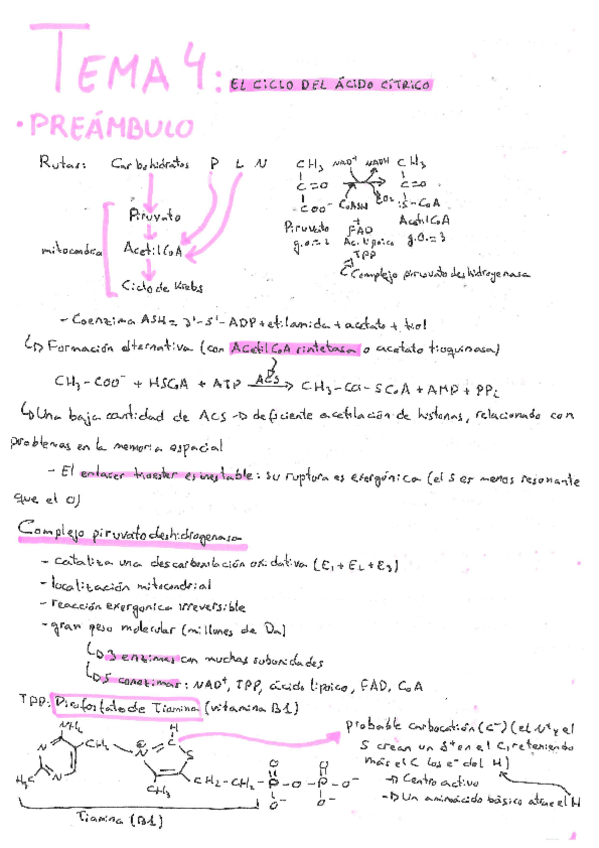 TEMA 4: EL CICLO DEL ÁCIDO CÍTRICO
• PREÁMBULO
Rutas: Carbohidratos P L N
Piruvato
mitocondria
Acetil CoA
Ciclo de Krebs
CH3 NAD+ NADH CH3
C=O C=O
COO- CoASH CO2 :S-CoA
Piruvato FAD Acetil CoA
g.o.=2 Ac. lipoico g.o.=3
TPP
Complejo piruvato deshidrogenasa
- Coenzima ASH = 3'-5'-ADP + etilamida + acetato + tiol
Formación alternativa (con Acetil CoA sintetasa o acetato tioquinasa)
CH3-COO- + HSCoA + ATP ACS CH3-CO-SCoA + AMP + PPi
Una baja cantidad de ACS → deficiente acetilación de histonas, relacionado con
problemas en la memoria espacial
- El enlace tioester es inestable: su ruptura es exergónica (el S es menos resonante
que el O)
Complejo piruvato deshidrogenasa
- cataliza una descarboxilación oxidativa (E1 + E2 + E3)
- localización mitocondrial
- reacción exergonica irreversible
- gran peso molecular (millones de Da)
3 enzimas con muchas subunidades
5 coenzimas: NAD+, TPP, ácido lipoico, FAD, CoA
TPP: Difosfato de Tiamina (vitamina B1)
probable carbocatión (C-) (el N+ y el
S crean un δ+ en el C, reteniendo
más el C los e- del H)
→ Centro activo
→ Un aminoácido básico atrae el H
NH2 H
N CH2 N C S
H3C N CH3 CH2-CH2-O-P-O-P-O-
O- O-
Tiamina (B1)
1